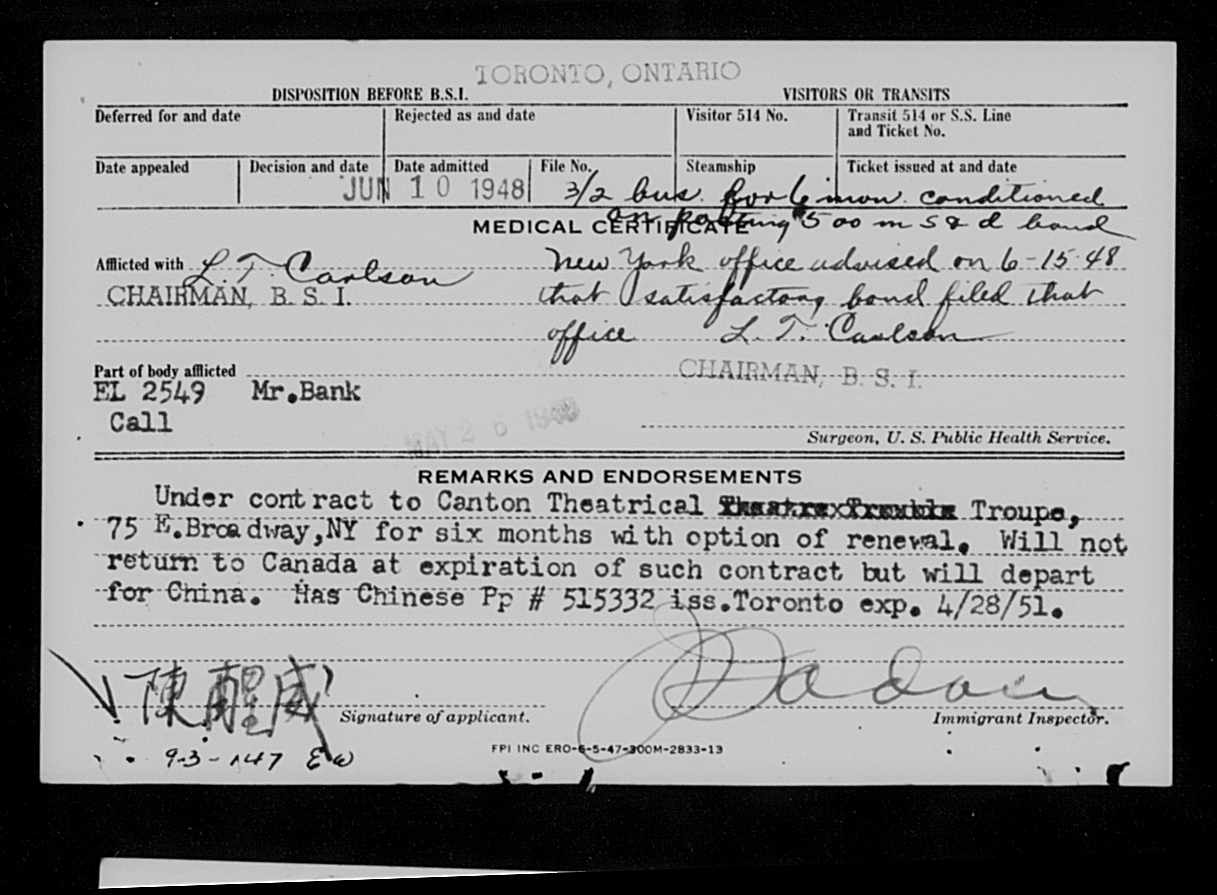 TORONTO, ONTARIO
DISPOSITION BEFORE B.S.I. VISITORS OR TRANSITS
Deferred for and date Rejected as and date Visitor 514 No. Transit 514 or S.S. Line
and Ticket No.
Date appealed Decision and date Date admitted File No. Steamship Ticket issued at and date
JUN 10 1948 3/2 bus. for 6 mon. conditioned
on posting $500 m s & d bond
MEDICAL CERTIFICATE
Afflicted with L. T. Carlson New York office advised on 6-15-48
CHAIRMAN, B. S. I. that satisfactory bond filed that
office L. T. Carlson
Part of body afflicted CHAIRMAN, B. S. I.
EL 2549 Mr.Bank
Call
MAY 26 1948
Surgeon, U. S. Public Health Service.
REMARKS AND ENDORSEMENTS
Under contract to Canton Theatrical Troupe,
75 E.Broadway,NY for six months with option of renewal. Will not
return to Canada at expiration of such contract but will depart
for China. Has Chinese Pp # 515332 iss.Toronto exp. 4/28/51.
陳醒威
Signature of applicant. Immigrant Inspector.
FPI INC ERO-6-5-47-300M-2833-13